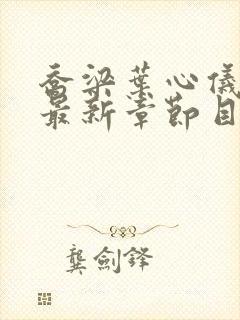 乔梁葉心儀
最新章節目
龔劍鋒